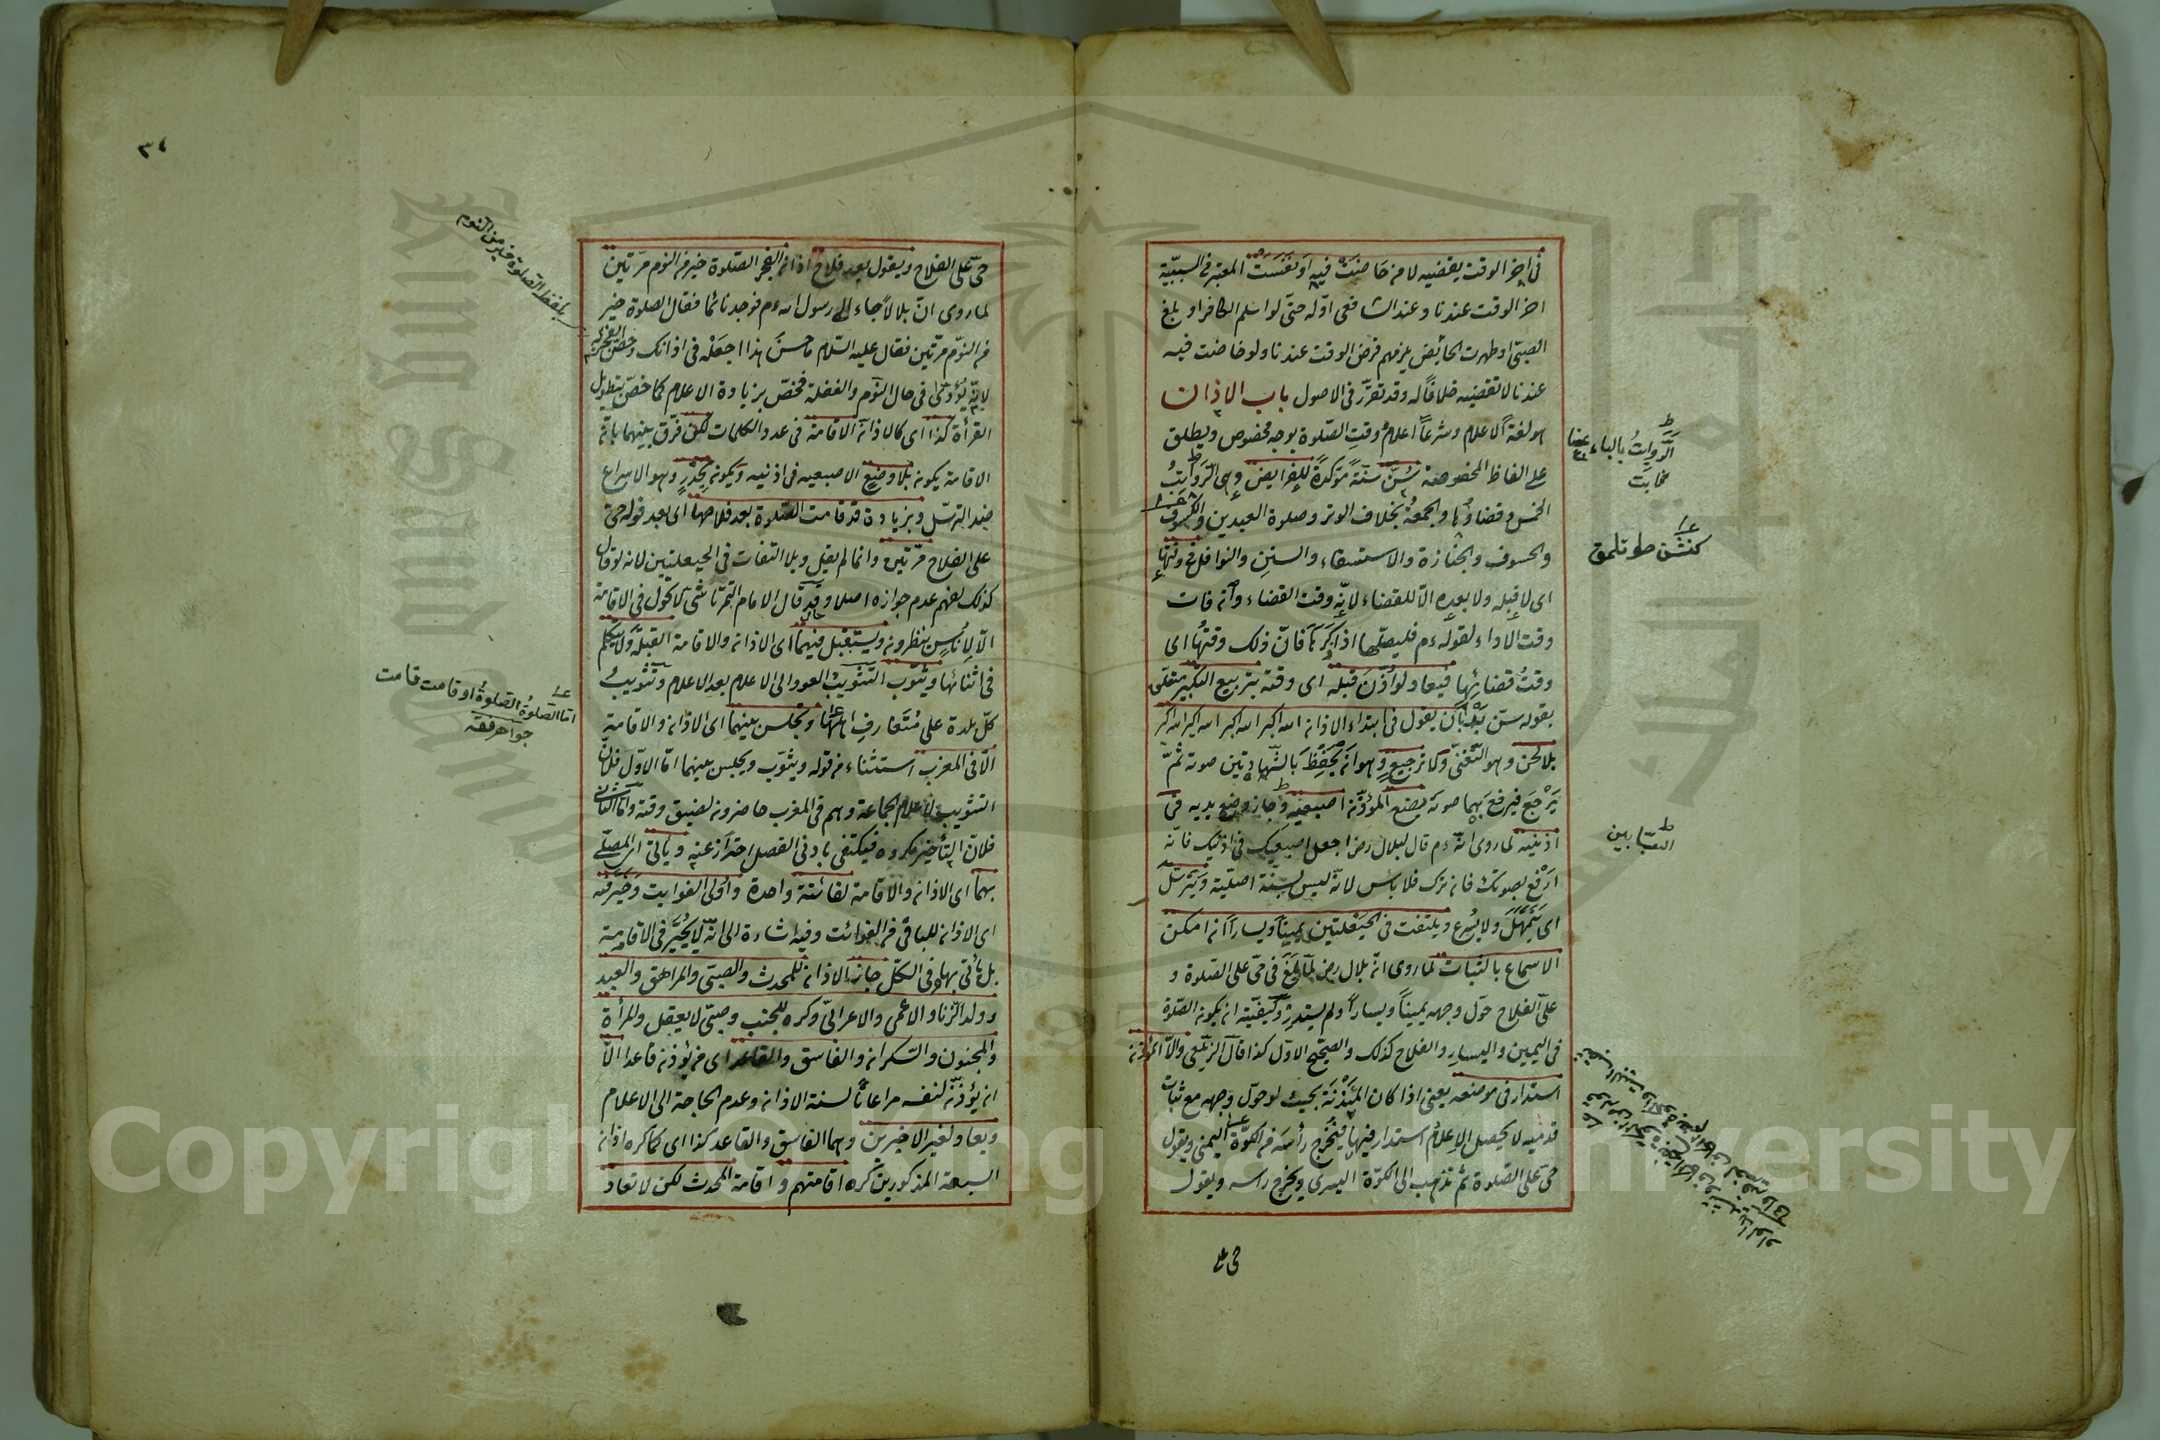 في آخر الوقت يقضيه لا من حاضت فيه او نفست المعتبر في السببية
اخر الوقت عندنا وعند الشافعي اوله حتى لو اسلم الكافر او بلغ
الصبي او طهرت الحائض يلزمهم فرض الوقت عندنا ولو حاضت فيه
عندنا لا تقضيه خلافا له وقد تقرر في الاصول باب الاذان
هو لغة الاعلام وشرعا اعلام وقت الصلوة بوجه مخصوص ويطلق
على الفاظ المخصوصة سن سنة مؤكدة للفرائض وهي الرواتب
الخمس وقضاؤها والجمعة بخلاف الوتر وصلوة العيدين والكسوف
والخسوف والجنازة والاستسقاء والسنن والنوافل في وقتها
اي لا قبله ولا بعده الا للقضاء لانه وقت القضاء وان فات
وقت الاداء لقوله ءم فليصلها اذا ذكرها فان ذلك وقتها اي
وقت قضائها فيعاد لو اذن قبله اي وقته بتربيع التكبير متعلق
بقوله سن بان يقول في ابتداء الاذان الله اكبر الله اكبر الله اكبر الله اكبر
بلا لحن وهو التغني وكا ترجيع وهو ان يخفض بالشهادتين صوته ثم
يرجع فيرفع بهما صوته يضع المؤذن اصبعيه وجاز وضع يديه في
اذنيه لما روى انه ءم قال لبلال رض اجعل اصبعيك في اذنيك فانه
ارفع لصوتك فان ترك فلا باس لانه ليس بسنة اصلية ويترسل
اي يتمهل ولا يسرع ويلتفت في الحيعلتين يمينا ويسارا ان امكن
الاسماع بالثبات لما روى ان بلال رض لما بلغ في حي على الصلوة و
على الفلاح حول وجهه يمينا ويسارا ولم يستدر وكيفيته ان يكون الصلوة
في اليمين واليسار والفلاح كذلك والصحيح الاول كذا قال الزيلعي والا المؤذن
استدار في موضعه يعني اذا كان المئذنة بحيث لو حول وجهه مع ثبات
قدميه لا يحصل الاعلام استدار فيها فيخرج رأسه من الكوة اليمنى ويقول
حي على الصلوة ثم تذهب الى الكوة اليسرى ويخرج راسه ويقول
حي على
الرواتب بالباء
كنشق
٣٤
حي على الفلاح ويقول بعد فلاح اذان الفجر الصلوة خير من النوم مرتين
لما روى ان بلالا جاء الى رسول الله ءم فوجد نائما فقال الصلوة خير
من النوم مرتين فقال عليه السلام ما احسن هذا اجعله في اذانك وخص الفجر به
لانه يؤدى في حال النوم والغفلة فخص بزيادة الاعلام كما خص بتطويل
القرأة كذا اي كالاذان الاقامة في عدد الكلمات لكن فرق بينهما بان
الاقامة يكون بلا وضع الاصبعين في اذنيه ويكون بحدر وهو الاسراع
ضد الترسل وبزيادة قد قامت الصلوة بعد فلاحها اي بعد قوله حي
على الفلاح مرتين وانما لم يقل وبلا التفات في الحيعلتين لانه لو قال
كذلك لفهم عدم جوازه اصلا وقد قال الامام التمرتاشي لا تحول في الاقامة
الا لاناس ينظرونه ويستقبل فيهما اي الاذان والاقامة القبلة ولا يتكلم
في اثنائها ويثوب التثويب العود الى الاعلام بعد الاعلام وتثويب
كل بلدة على متعارف اهلها ويجلس بينهما اي الاذان والاقامة
الا في المغرب استثناء من قوله ويثوب ويجلس بينهما اما الاول فلان
التثويب لاعلام الجماعة وهم في المغرب حاضرون لضيق وقته واما الثاني
فلان التأخير مكروه فيكتفى بادنى الفصل احترازا عنه ويأتي اي المصلي
بهما اي الاذان والاقامة لفائتة واحدة واولى الفوايت وخير فيه
اي الاذان للباقي من الفوائت وفيه اشارة الى انه لا يخير في الاقامة
بل يأتي بها في الكل جاز الاذان للمحدث والصبي والمراهق والعبد
وولد الزنا والاعمى والاعرابي وكره للجنب وصبي لا يعقل والمرأة
والمجنون والسكران والفاسق والقاعد اي من يؤذن قاعدا الا
ان يؤذن لنفسه مراعاة لسنة الاذان وعدم الحاجة الى الاعلام
ويعاد لغير الاخيرين وهما الفاسق والقاعد كذا اي كما كره اذان
السبعة المذكورين كره اقامتهم واقامة المحدث لكن لا تعاد
بلفظ الصلوة خير من النوم
اما الصلوة الصلوة او قامت قامت
Copyright © King Saud University